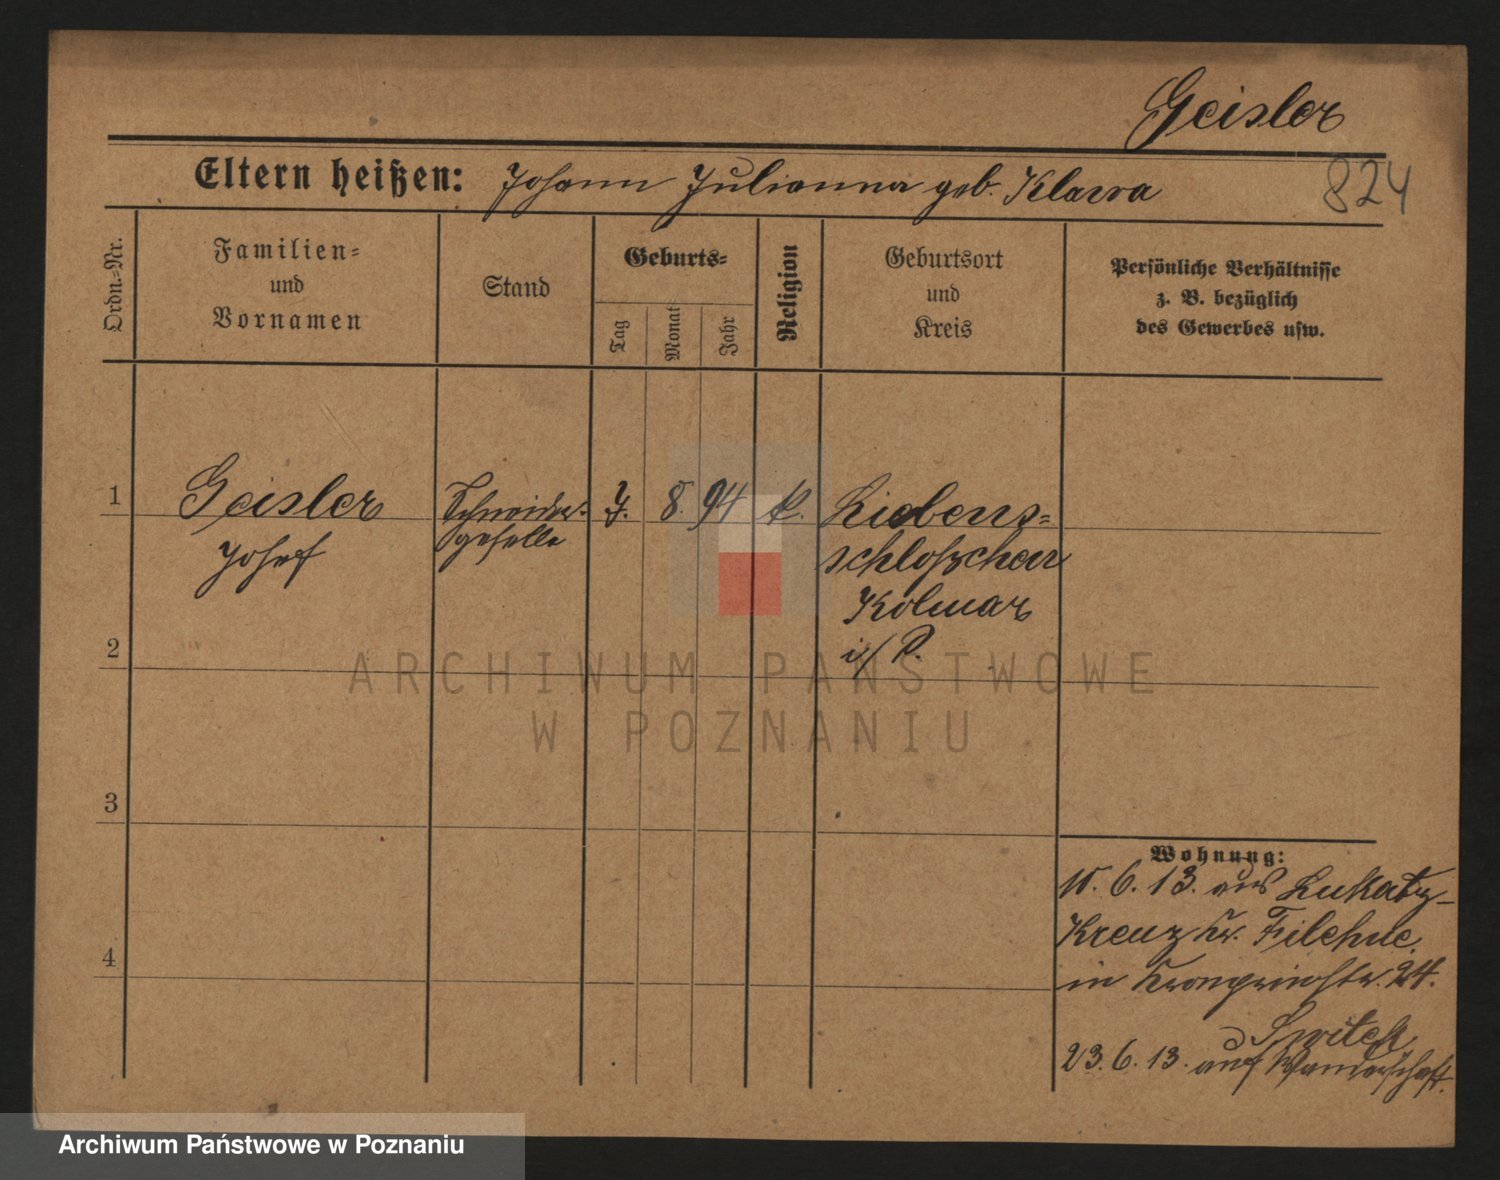 Geisler
Eltern heißen: Johann Julianna geb. Klawa
824
Ordn.-Nr.
Familien-
und
Vornamen
Stand
Geburts-
Tag
Monat
Jahr
Religion
Geburtsort
und
Kreis
Persönliche Verhältnisse
z. B. bezüglich
des Gewerbes usw.
1
Geisler
Josef
Schneider-
geselle
7.
8.
94
k.
Liebens-
Kolmar
i/P.
2
3
4
Wohnung:
10. 6. 13. aus Lukatz-
Kreuz Kr. Filehne
in Kronprinzstr. 24.
Switek
23. 6. 13. auf Wanderschaft.
ARCHIWUM PAŃSTWOWE
W POZNANIU
Archiwum Państwowe w Poznaniu